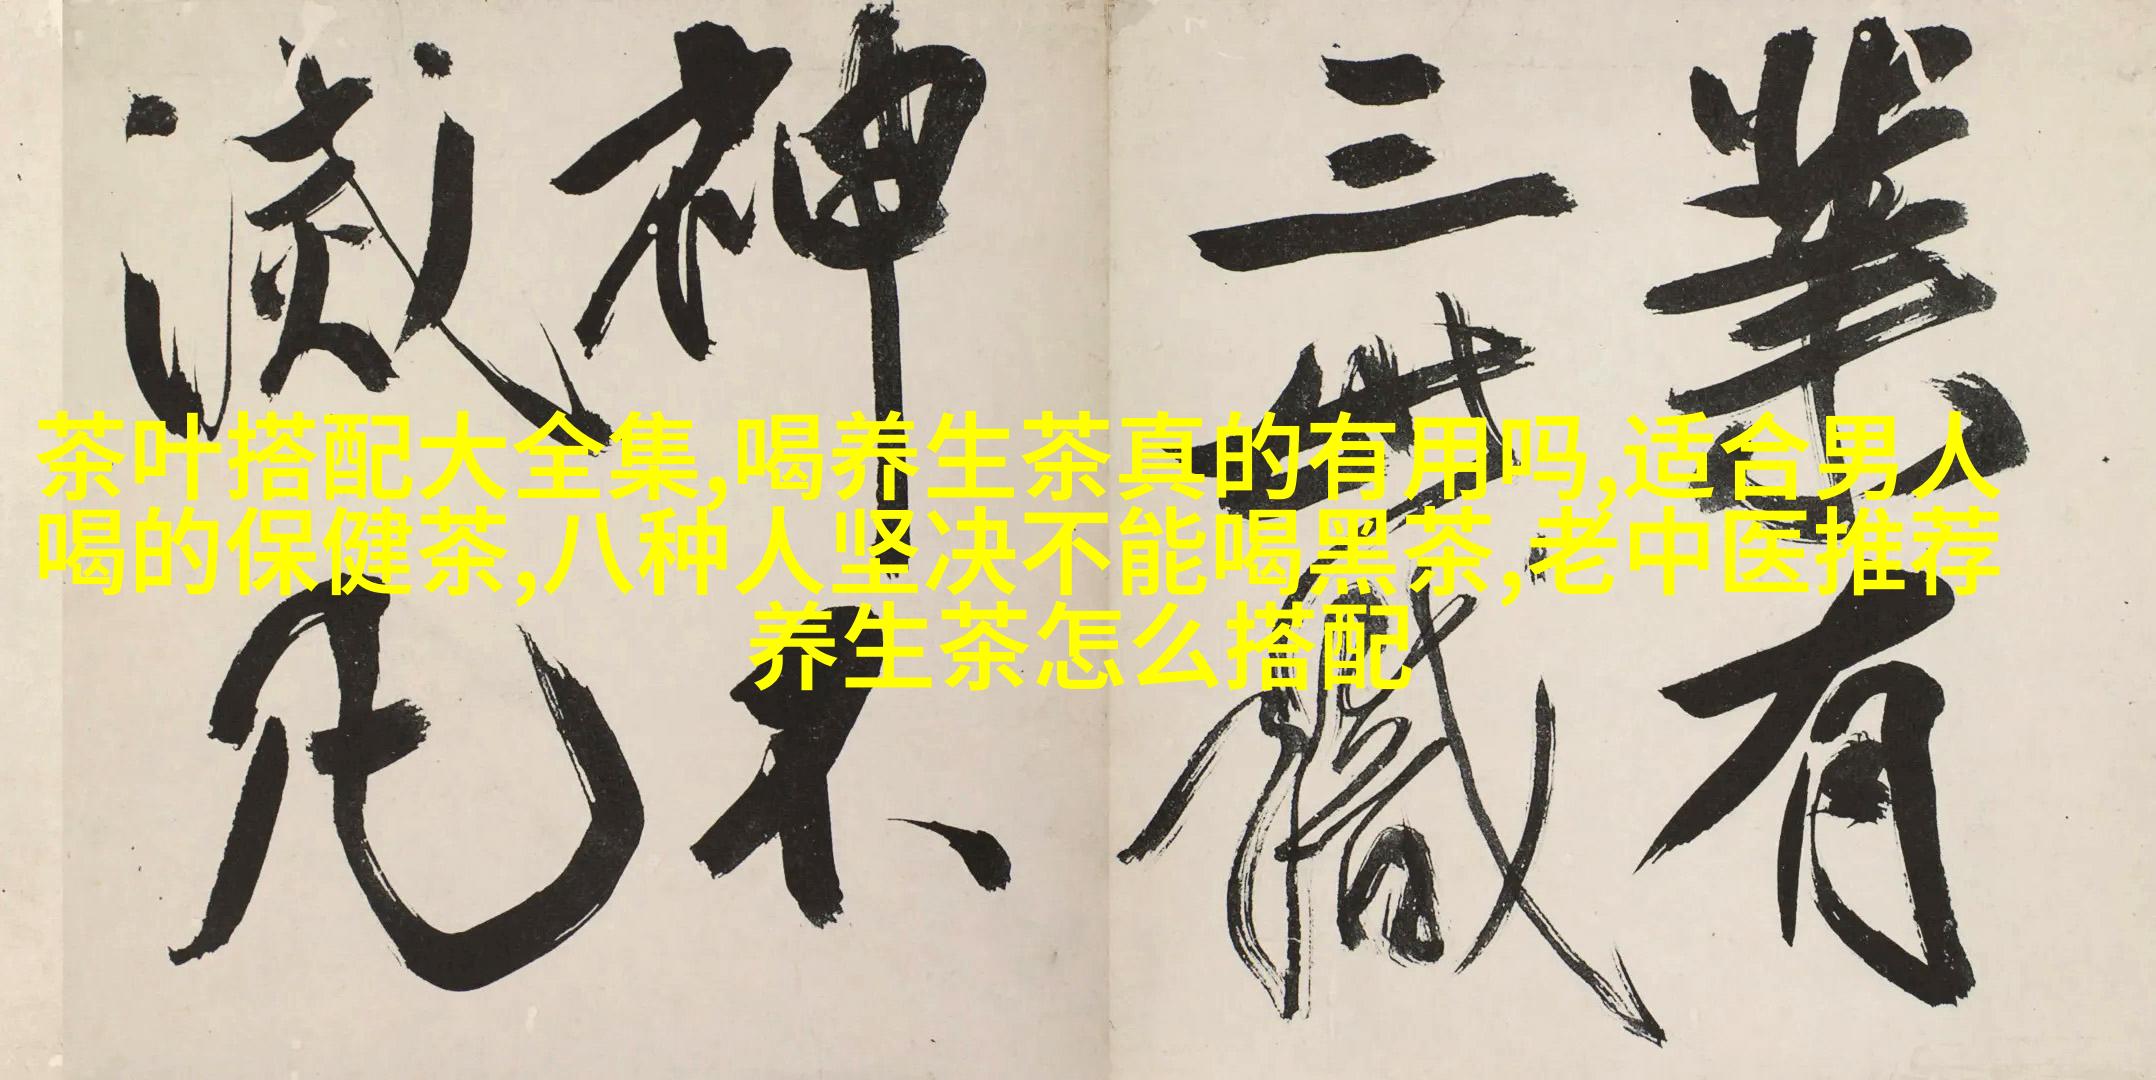 業有
三世識
神不
滅凡
茶叶搭配大全集,喝养生茶真的有用吗,适合男人
喝的保健茶,八种人坚决不能喝黑茶,老中医推荐
养生茶怎么搭配